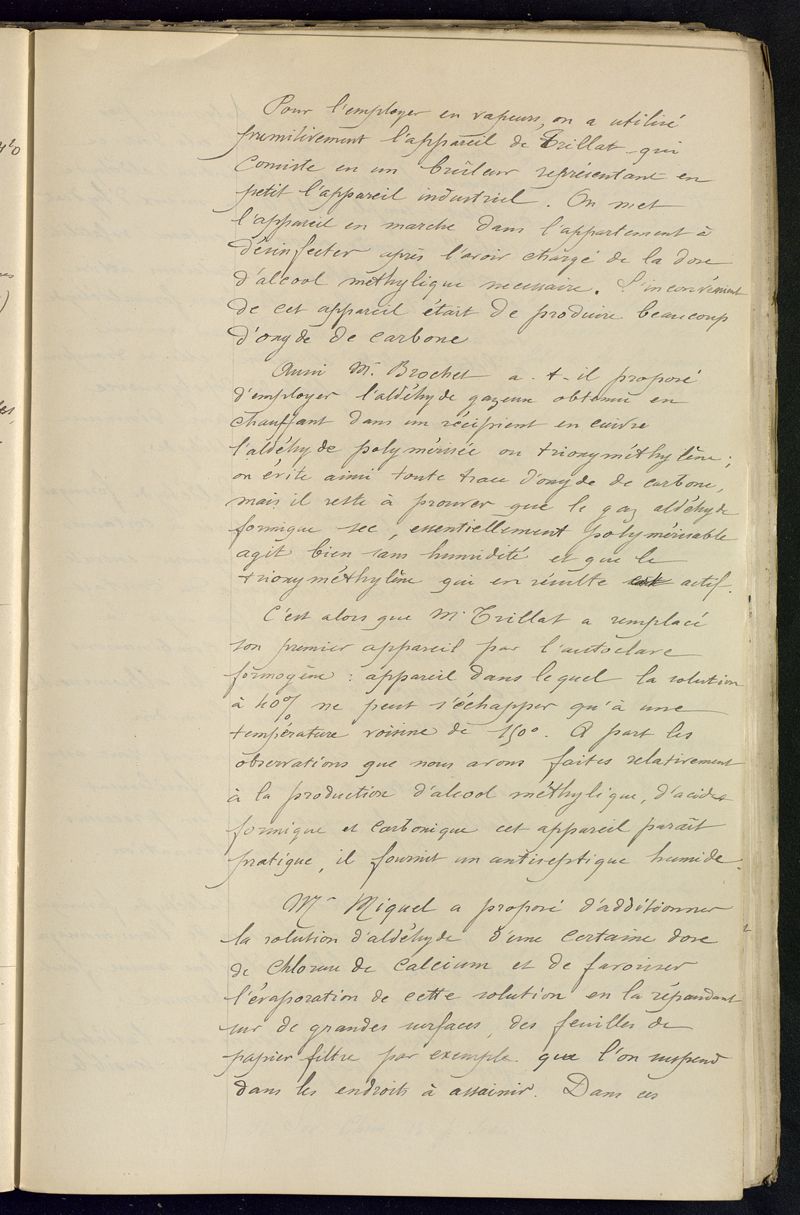 Pour l'employer en vapeurs, on a utilisé
primitivement l'appareil de Trillat qui
consiste en un brûleur représentant en
petit l'appareil industriel. On met
l'appareil en marche dans l'appartement à
désinfecter après l'avoir chargé de la dose
d'alcool méthylique necessaire. L'inconvénient
de cet appareil était de produire beaucoup
d'oxyde de carbone
Aussi Mr. Brochet a-t-il proposé
d'employer l'aldéhyde gazeuse obtenue en
chauffant dans un récipient en cuivre
l'aldéhyde polymérisée ou trioxyméthylène ;
on évite ainsi toute trace d'oxyde de carbone,
mais il reste à prouver que le gaz aldéhyde
formique sec, essentiellement polymérisable
agit bien sans humidité et que le
trioxyméthylène qui en résulte est actif.
C'est alors que Mr Trillat a remplacé
son premier appareil par l'autoclave
formogène : appareil dans lequel la solution
à 40% ne peut s'échapper qu'à une
température voisine de 150°. A part les
observations que nous avons faites relativement
à la production d'alcool méthylique, d'acides
formique et carbonique cet appareil paraît
pratique, il fournit un antiseptique humide.
Mr Miquel a proposé d'additionner
la solution d'aldéhyde d'une certaine dose
de chlorure de calcium et de favoriser
l'évaporation de cette solution en la répandant
sur de grandes surfaces, des feuilles de
papier filtre par exemple que l'on suspend
dans les endroits à assainir. Dans ces